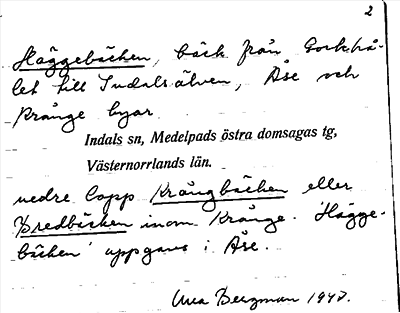 2
Häggebäcken, bäck från Gorkhå-
let till Indalsälven, Åse och
Krånge byar
Indals sn, Medelpads östra domsagas tg,
Västernorrlands län.
nedre lopp Krångbäcken eller
Bredbäcken inom Krånge. 'Hägge-
bäcken' uppgavs i Åse.
Bergman 194